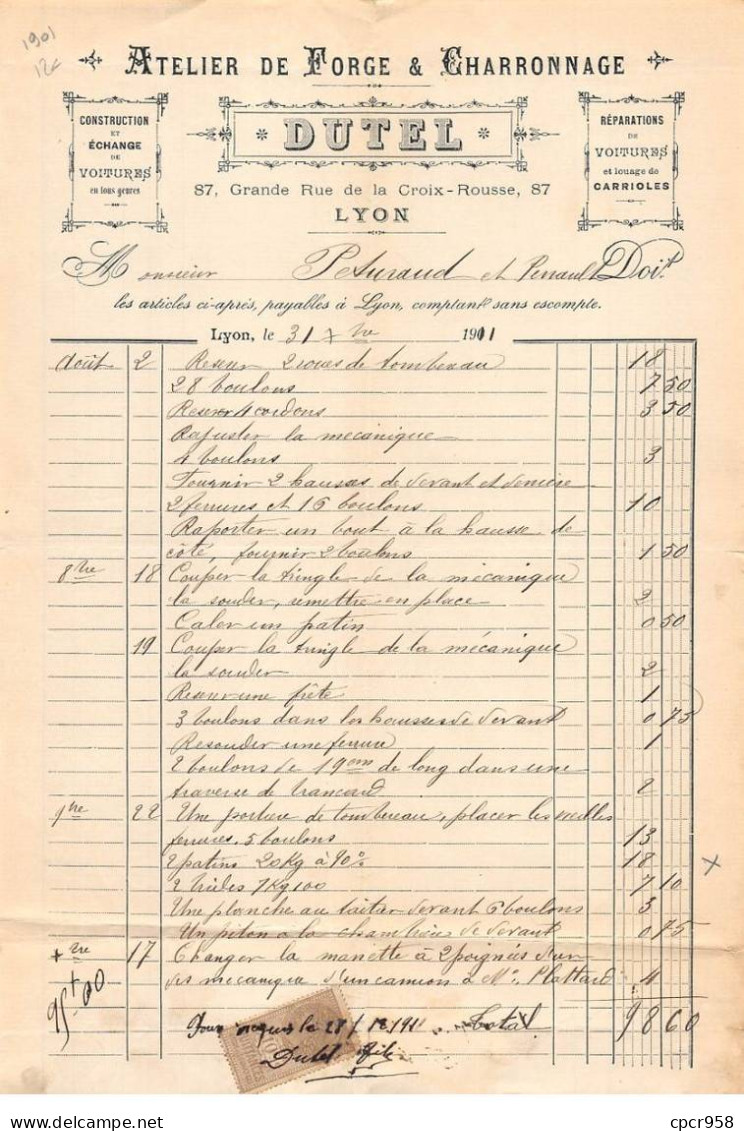 1901
12
ATELIER DE FORGE & CHARRONNAGE
CONSTRUCTION
ET
ÉCHANGE
DE
VOITURES
en tous genres
DUTEL
RÉPARATIONS
DE
VOITURES
et louage de
CARRIOLES
87, Grande Rue de la Croix-Rousse, 87
LYON
Monsieur Peturaud et Perrault Doit
les articles ci-après, payables à Lyon, comptant sans escompte.
Lyon, le 31 Xbre 1911
Août 2 2 roues de tombereau 18
28 boulons 7 50
4 cordons 3 50
Rajuster la mécanique
4 boulons 3
Fournir 2 hausses de devant et derrière
2 ferrures et 16 boulons 10
Raporter un bout à la hausse de
côté, fournir 2 boulons 1 50
8bre 18 Couper la tringle de la mécanique
la souder, remettre en place 2
Caler un patin 0 50
19 Couper la tringle de la mécanique
la souder 2
une frète 1
3 boulons dans les hausses de devant 0 75
Resouder une ferrure 1
2 boulons de 19cm de long dans une
traverse de trancard 2
9bre 22 Une portière de tombereau, placer les vieilles
ferrures, 5 boulons 13
2 patins 20 Kg à 90% 18
2 7 Kg 100 7 10
Une planche au devant 6 boulons 3
Un piton à la chambrière de devant 0 75
Xbre 17 Changer la manette à 2 poignées d'un
vis mécanique d'un camion à Mr Plattard 4
Pour acquit le 28/12/911 Total 98 60
Dutel fils
95+00
cpcr958